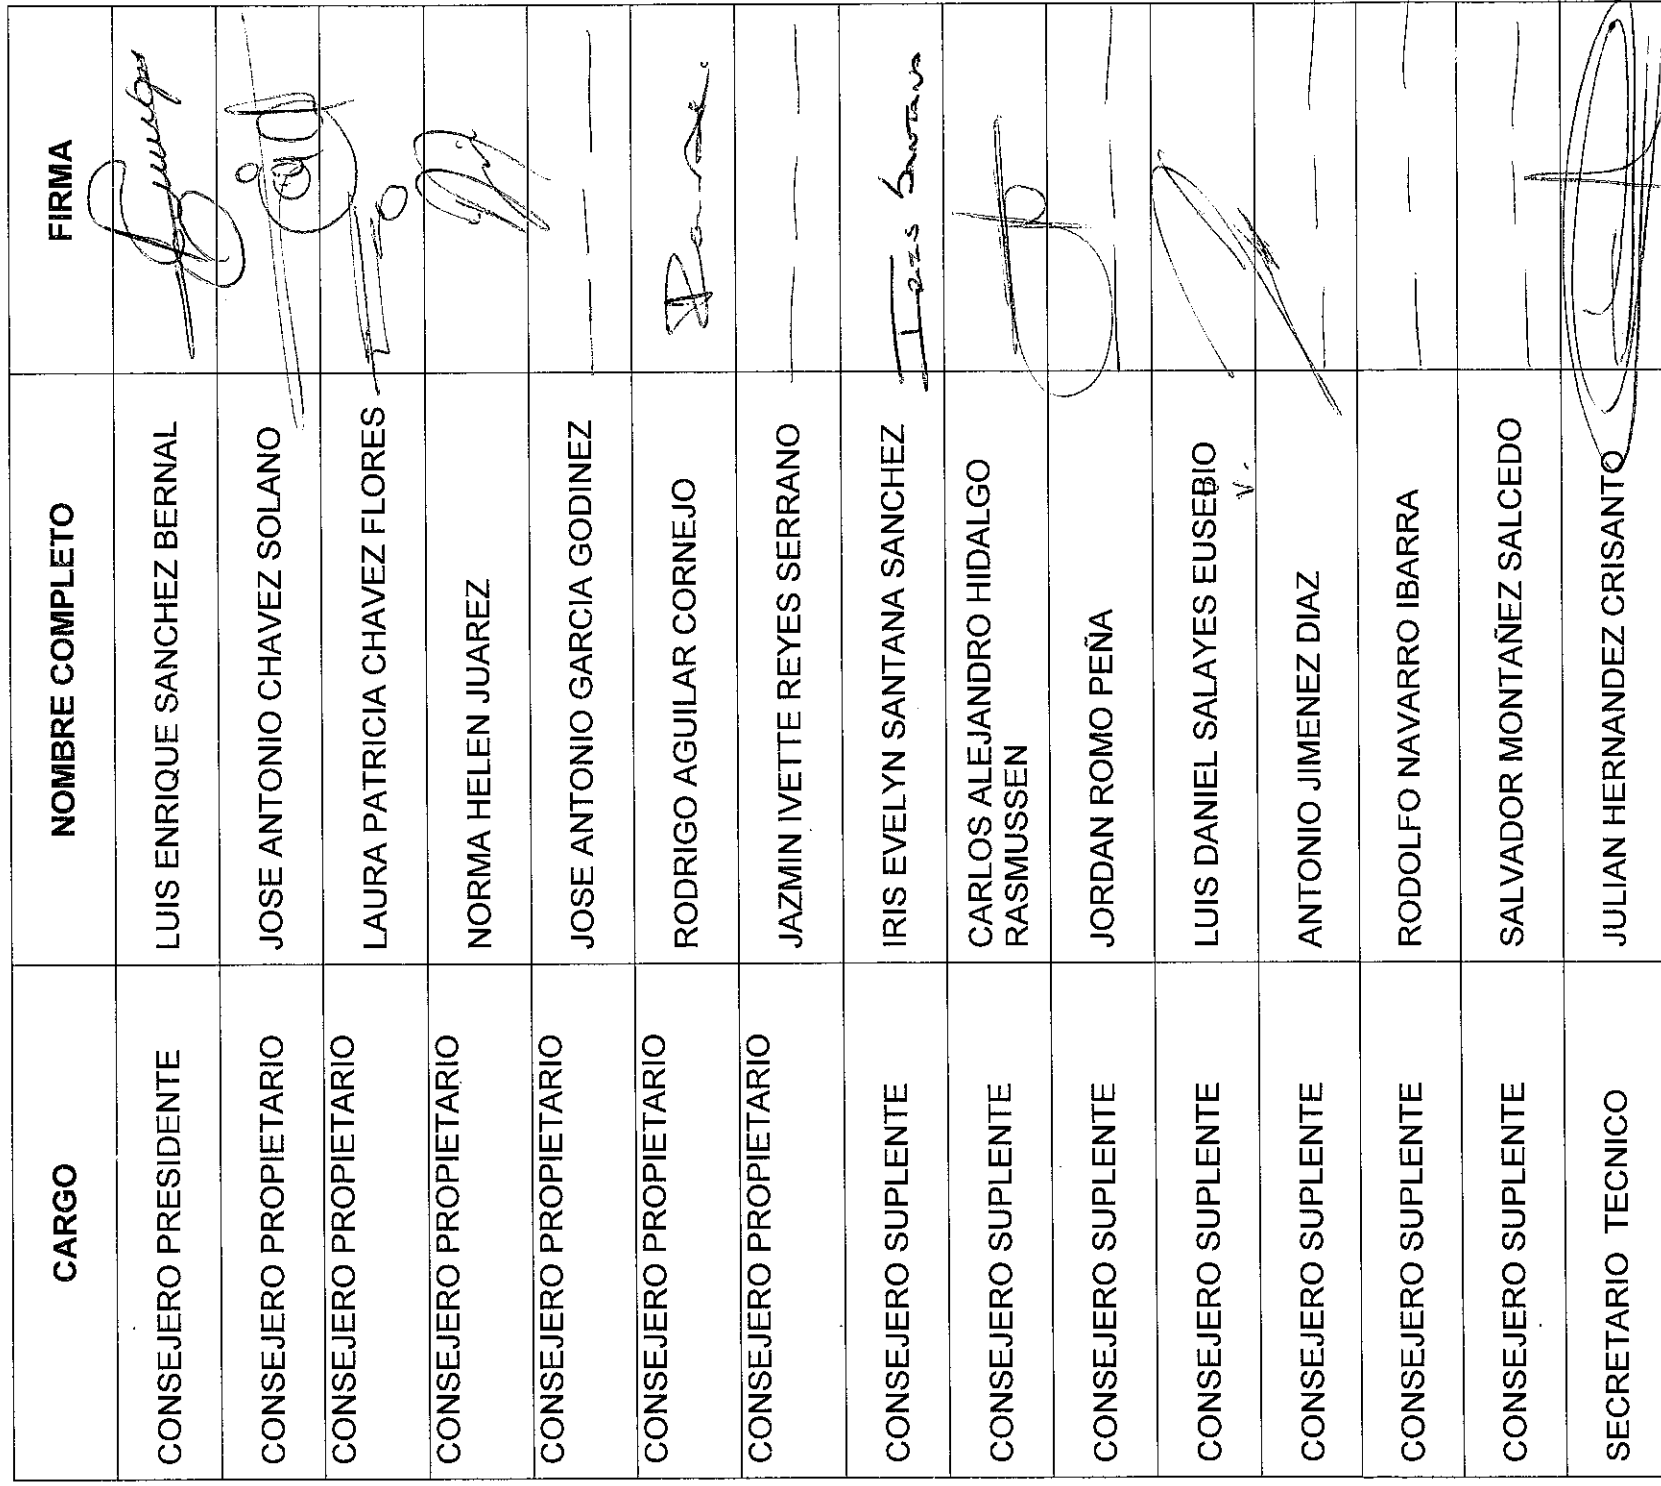 CARGO NOMBRE COMPLETO FIRMA
CONSEJERO PRESIDENTE LUIS ENRIQUE SANCHEZ BERNAL
CONSEJERO PROPIETARIO JOSE ANTONIO CHAVEZ SOLANO
CONSEJERO PROPIETARIO LAURA PATRICIA CHAVEZ FLORES
CONSEJERO PROPIETARIO NORMA HELEN JUAREZ
CONSEJERO PROPIETARIO JOSE ANTONIO GARCIA GODINEZ
CONSEJERO PROPIETARIO RODRIGO AGUILAR CORNEJO
CONSEJERO PROPIETARIO JAZMIN IVETTE REYES SERRANO
CONSEJERO SUPLENTE IRIS EVELYN SANTANA SANCHEZ
CONSEJERO SUPLENTE CARLOS ALEJANDRO HIDALGO
RASMUSSEN
CONSEJERO SUPLENTE JORDAN ROMO PEÑA
CONSEJERO SUPLENTE LUIS DANIEL SALAYES EUSEBIO
V.
CONSEJERO SUPLENTE ANTONIO JIMENEZ DIAZ
CONSEJERO SUPLENTE RODOLFO NAVARRO IBARRA
CONSEJERO SUPLENTE SALVADOR MONTAÑEZ SALCEDO
SECRETARIO TECNICO JULIAN HERNANDEZ CRISANTO